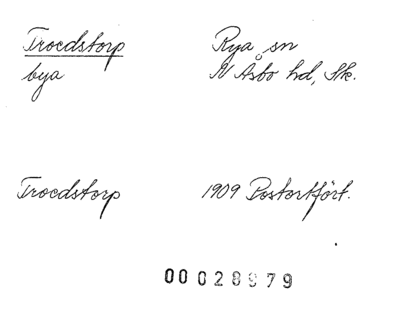 Troedstorp Rya sn
bya N Åsbo hd, Sk.
Troedstorp 1909 Postortfört.
00028979